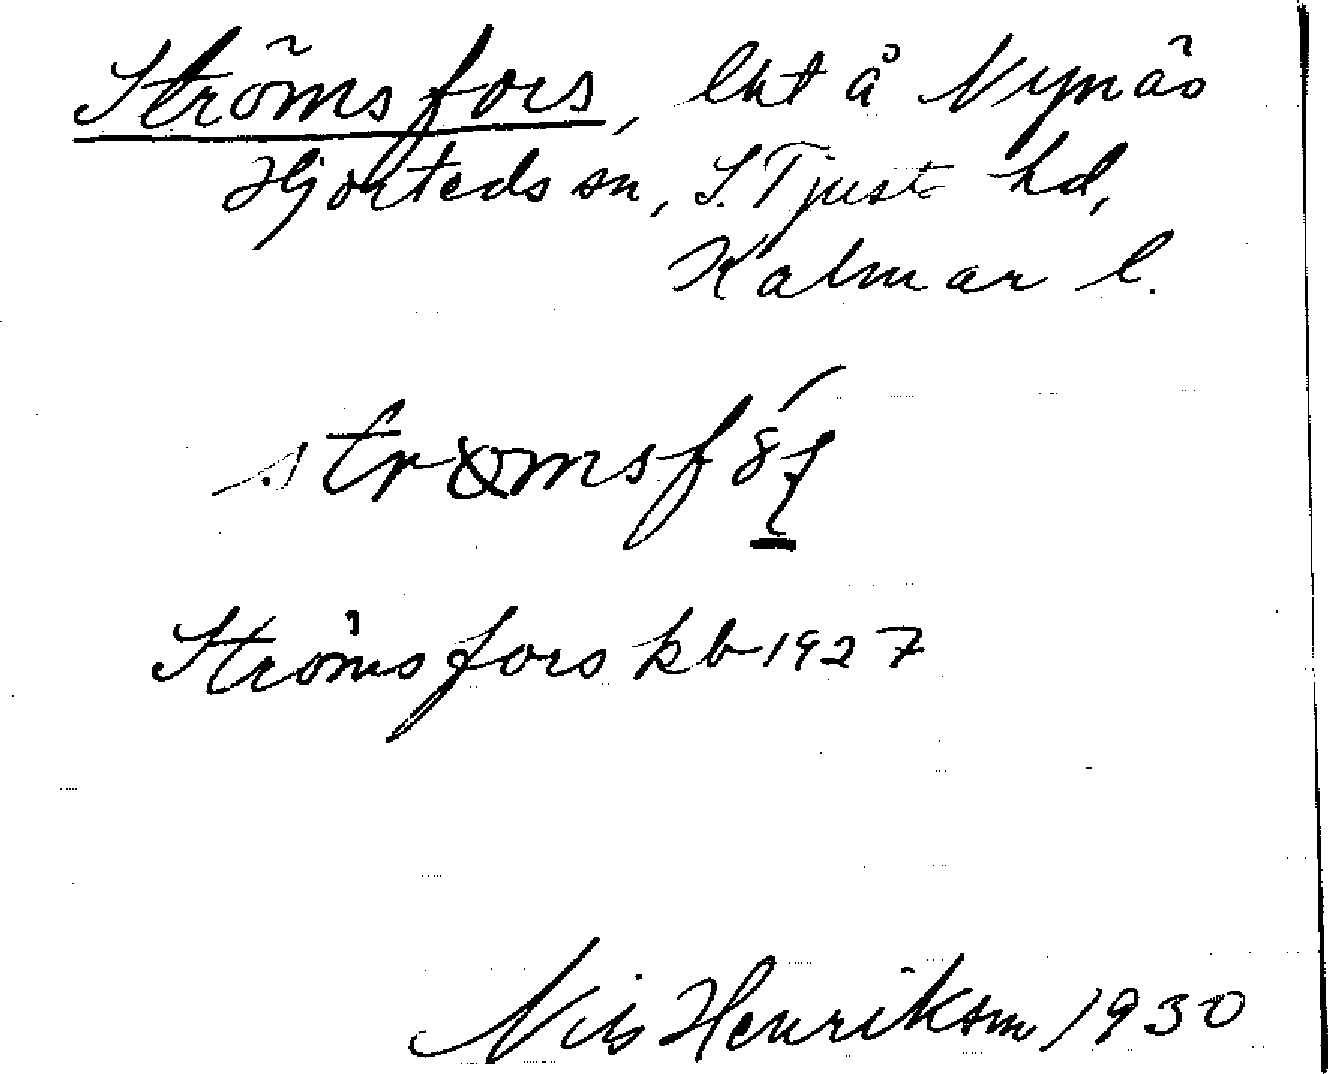 Strömsfors, lht å Nynäs
Hjorteds sn, S. Tjust hd,
Kalmar l.
Strömsfors kb 1927
Nils Henrikson 1930